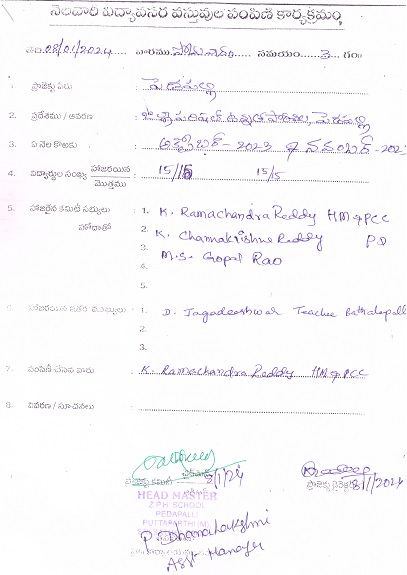 నెలవారి విద్యావసర వస్తువుల పంపిణి కార్యక్రమం
తేది:08/01/2024 వారము సోమవారం సమయం 3 గం
1. ప్రాజెక్టు పేరు : పెడపల్లి
2. ప్రదేశము / ఆవరణ : జిల్లా పరిషత్ ఉన్నత పాఠశాల, పెడపల్లి
3. ఏ నెల కొఱకు : అక్టోబర్ - 2023 & నవంబర్ - 202
4. విద్యార్థుల సంఖ్య హాజరయిన / మొత్తము : 15/15 15/5
5. హాజరైన కమిటీ సభ్యులు : 1. K. Ramachandra Reddy HM & PCC
హోదాతో 2. K. Channakrishna Reddy PD
3. M.S. Gopal Rao
4.
5.
6. హాజరయిన ఇతర ముఖ్యులు : 1. D. Jagadeeshwar Teacher Bathalapall
2.
3.
7. పంపిణీ చేసిన వారు : K. Ramachandra Reddy HM & PCC
8. వివరణ / సూచనలు :
ప్రాజెక్టు కమిటీ 8/1/24
ప్రాజెక్టు డైరెక్టర్ 8/1/2024
HEAD MASTER
Z.P.H. SCHOOL
PEDAPALLI
PUTTAPARTHI (M)
P. Dhanalakshmi
Asst Manager